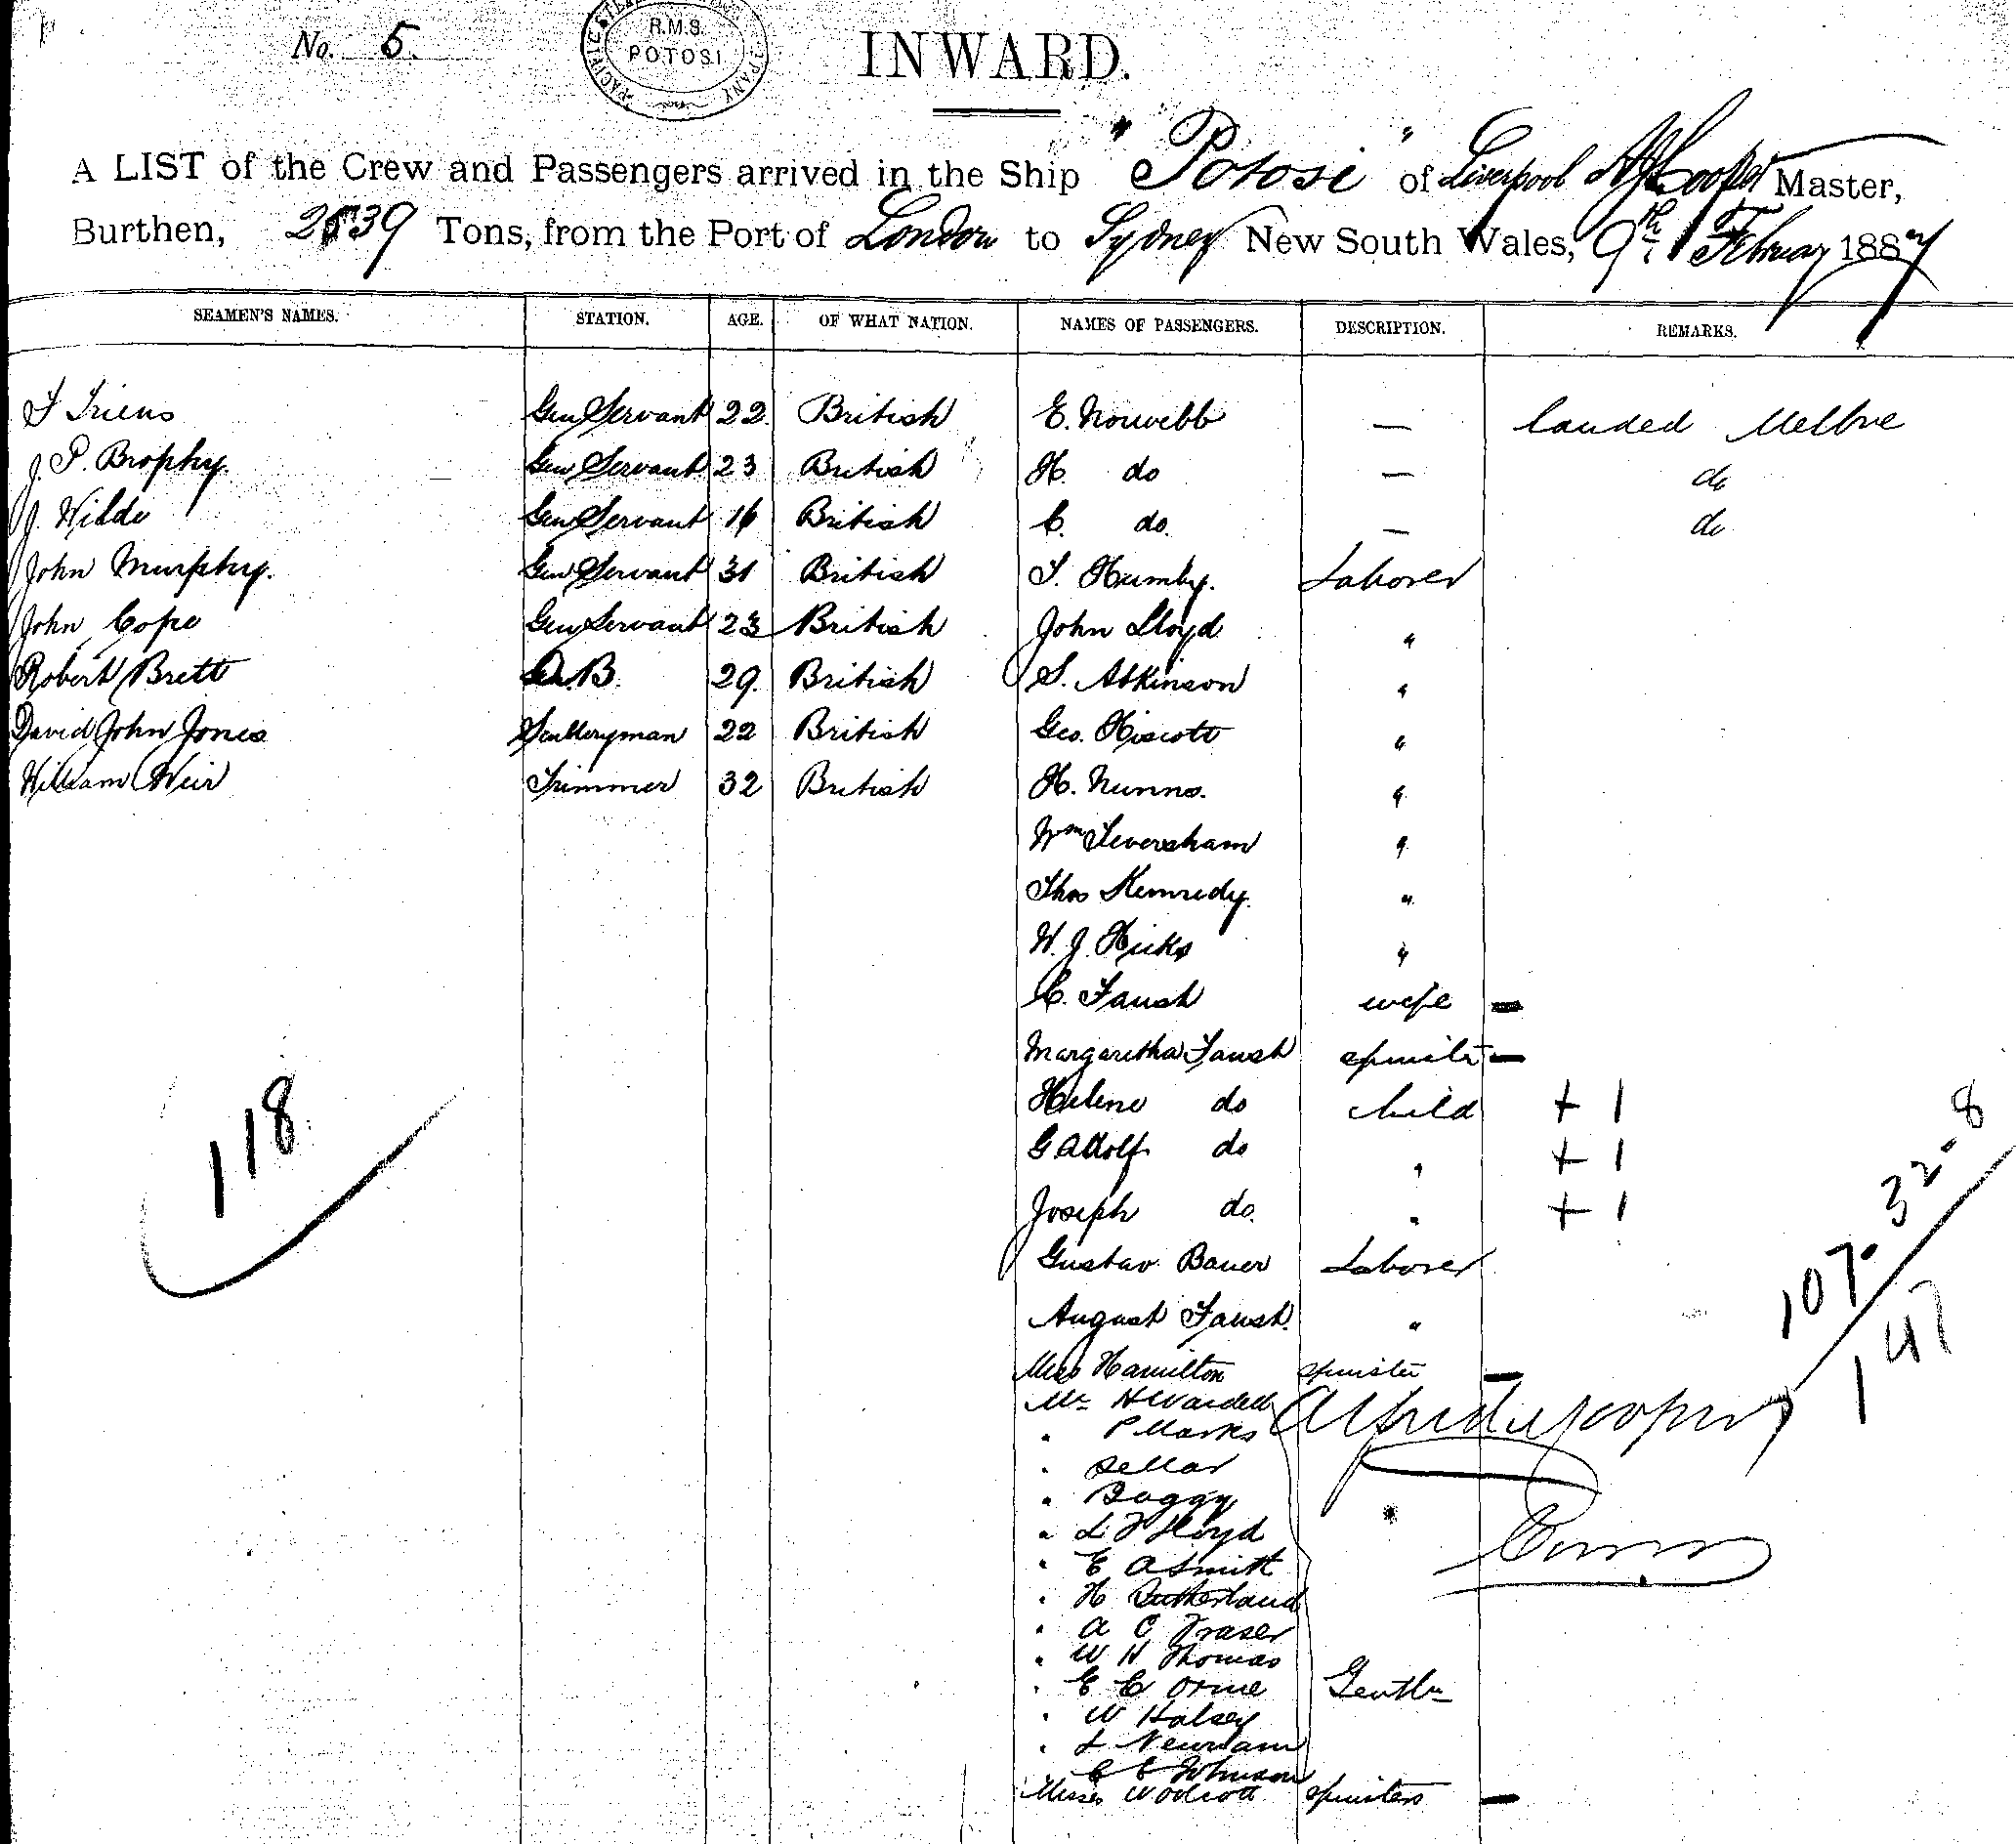 No. 5.
R.M.S.
POTOSI
INWARD.
A LIST of the Crew and Passengers arrived in the Ship "Potosi" of Liverpool Master,
Burthen, 2539 Tons, from the Port of London to Sydney New South Wales, 9th February 1887
SEAMEN'S NAMES. STATION. AGE. OF WHAT NATION. NAMES OF PASSENGERS. DESCRIPTION. REMARKS.
Gen Servant 22 British E. — landed Melbne
J. P. Brophy. Gen Servant 23 British H. do — do
J. Wilde Gen Servant 16 British C. do. — do
John Murphy. Gen Servant 31 British T. Humby. Laborer
John Cope Gen Servant 23 British John Lloyd "
Robert Brett A.B. 29. British S. Atkinson "
David John Jones Sculleryman 22 British Geo. Hiscott "
William Weir Trimmer 32 British H. Nunns. "
Wm Feversham "
Thos Kennedy. "
W. J. Hicks "
C. Faush wife —
Margaretha Faush spinster —
Helene do child + 1
G Adolf do " + 1
Joseph do. " + 1
118
Gustav Bauer Laborer
107. 32. 8
147
August Faush. "
Miss Hamilton spinster —
Mr H Wardell
" P Marks
" Sellar
" Boggy
" L F Lloyd
" E A Smith
" H Sutherland
" A C Fraser
" W H Thomas
" E C Orme Gentln
" W Halsey
" L Newnam
C E Johnson
Misses Woolcott spinsters —